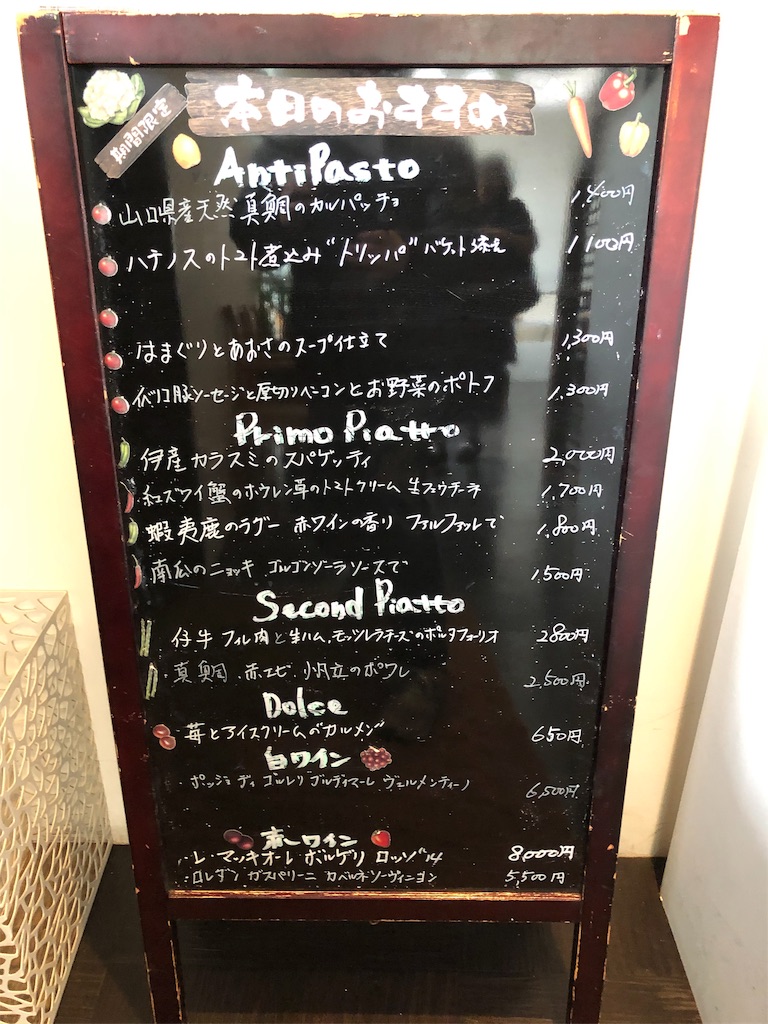 本日のおすすめ
期間限定
AntiPasto
山口県産天然真鯛のカルパッチョ 1,400円
ハチノスのトマト煮込み"トリッパ" バケット添え 1100円
はまぐりとあおさのスープ仕立て 1,300円
イベリコ豚ソーセージと厚切りベーコンとお野菜のポトフ 1,300円
Primo Piatto
伊産カラスミのスパゲッティ 2,000円
紅ズワイ蟹のホウレン草のトマトクリーム 生フェットチーネ 1,700円
蝦夷鹿のラグー 赤ワインの香り ファルファッレで 1,800円
南瓜のニョッキ ゴルゴンゾーラソースで 1,500円
Second Piatto
仔牛フィレ肉と生ハム、モッツァレラチーズのポルタフォーリオ 2800円
真鯛、赤エビ、小帆立のポワレ 2,500円
Dolce
苺とアイスクリームのカルメン 650円
白ワイン
・ポッジョ ディ ゴルレリ ゴルディマーレ ヴェルメンティーノ 6,500円
赤ワイン
・レ・マッキオーレ ボルゲリ ロッソ'14 8000円
・ロレダン ガスパリーニ カベルネソーヴィニヨン 5,500円